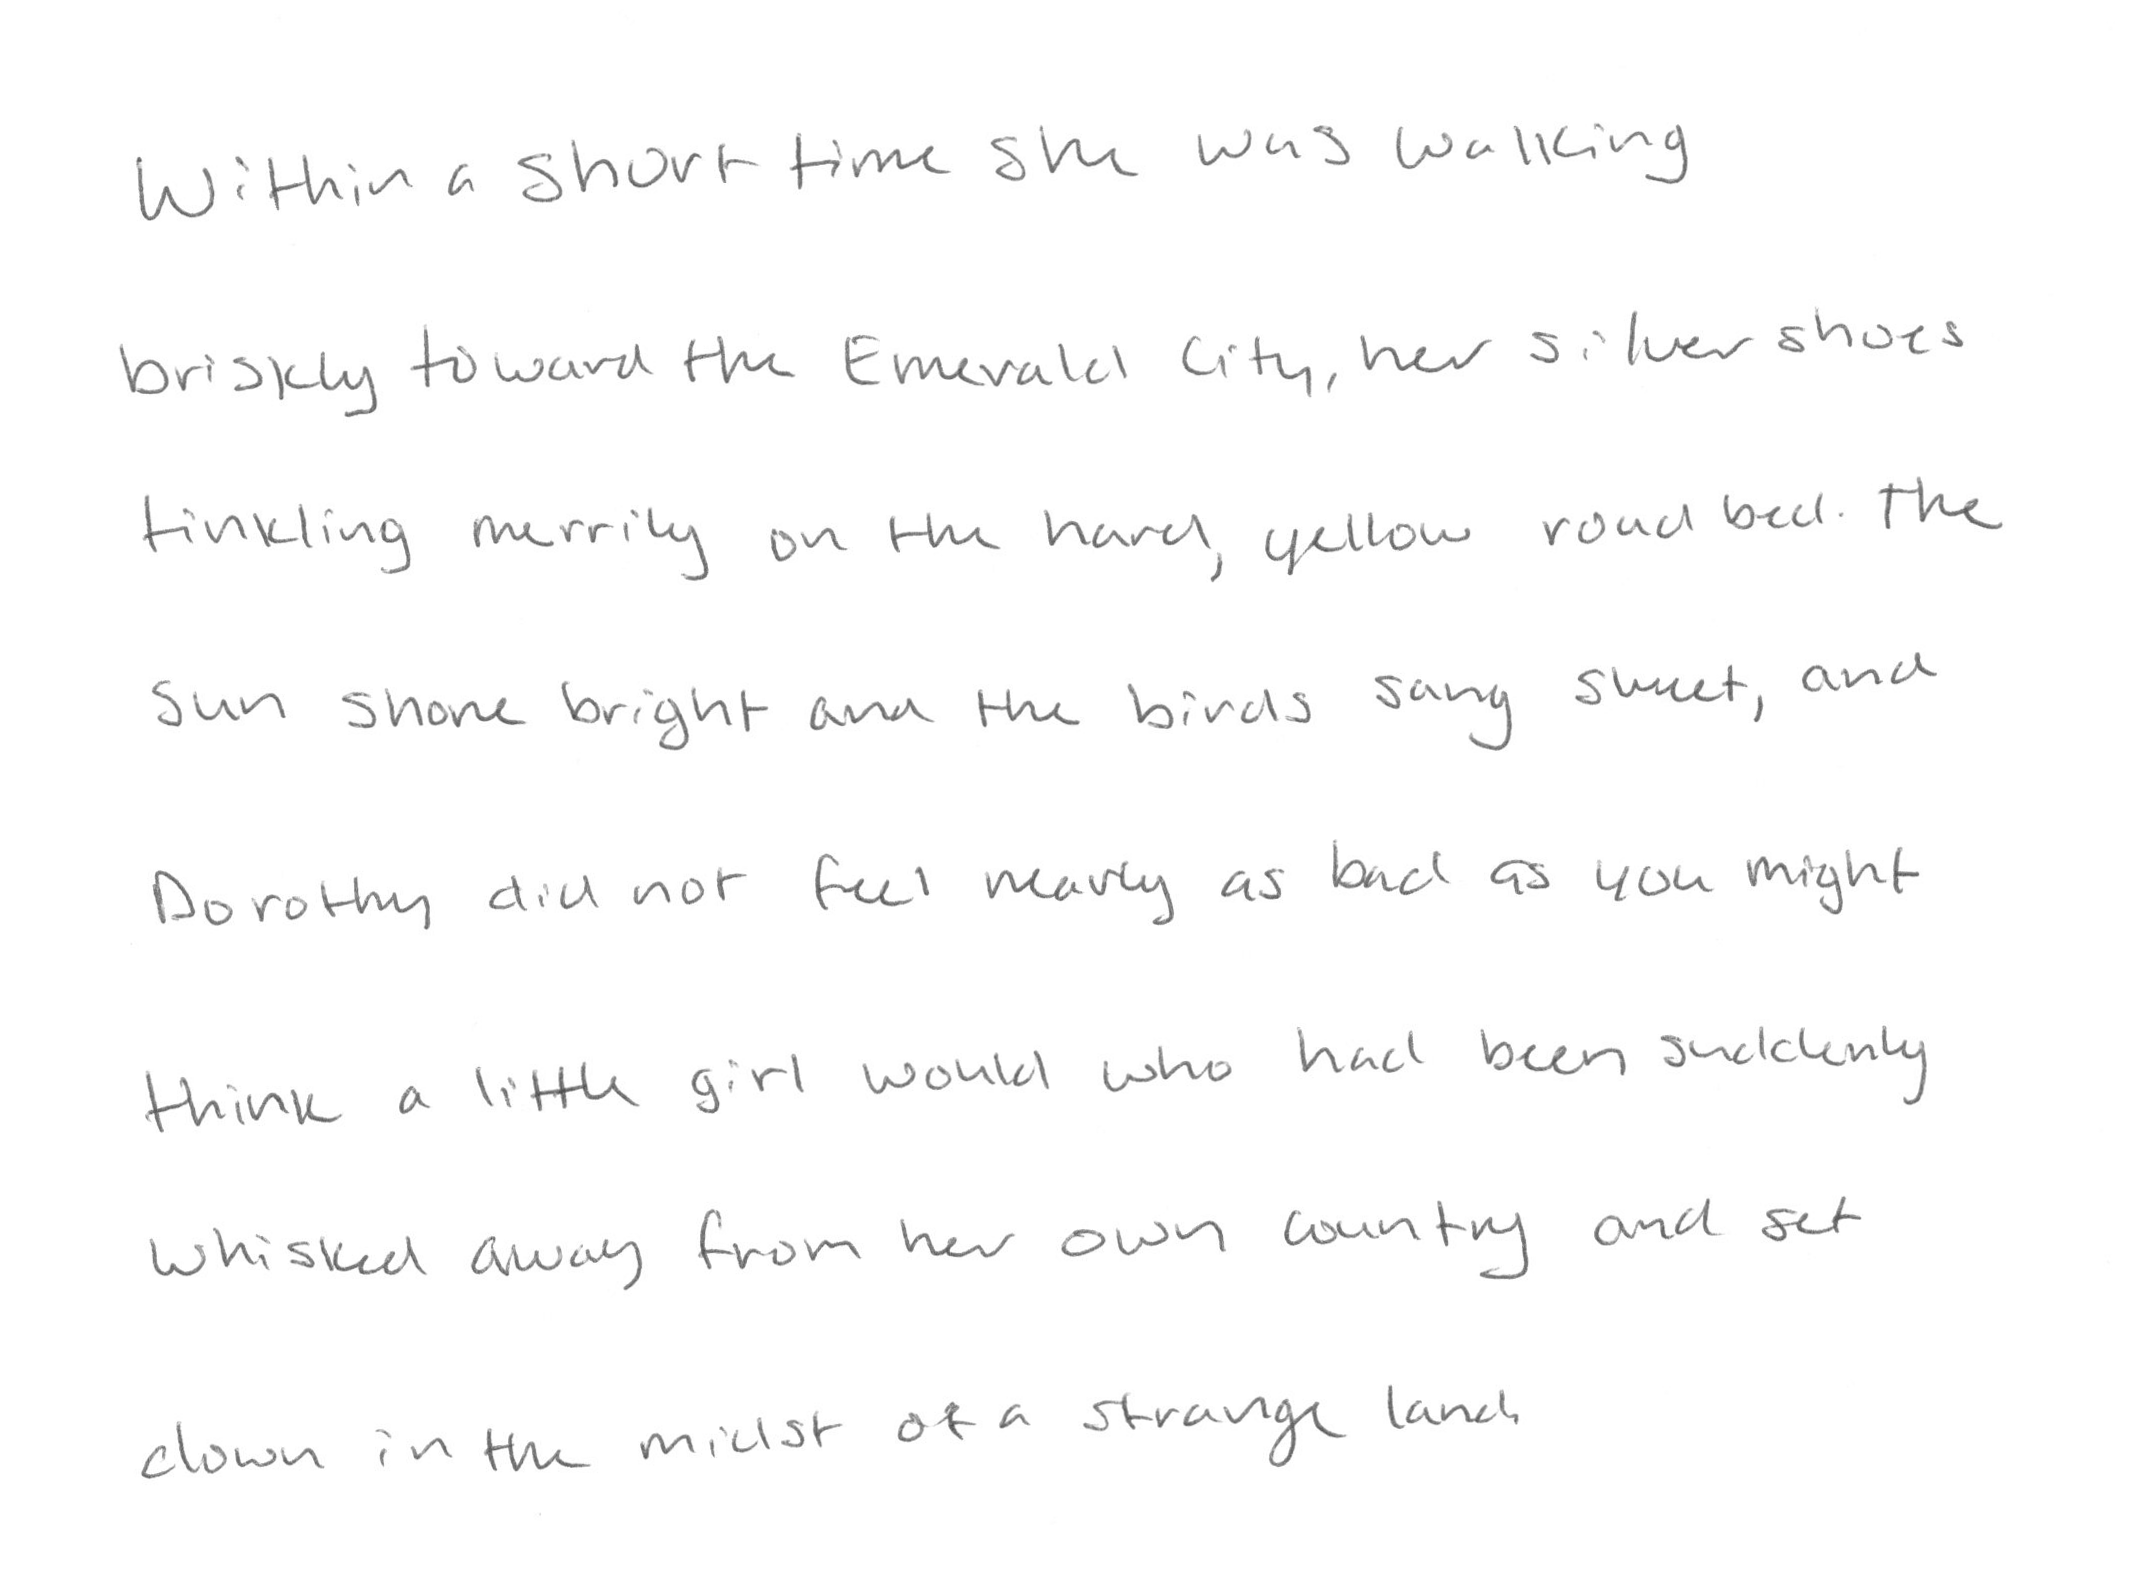 Within a short time she was walking
briskly toward the Emerald City, her silver shoes
tinkling merrily on the hard, yellow road bed. The
sun shone bright and the birds sang sweet, and
Dorothy did not feel nearly as bad as you might
think a little girl would who had been suddenly
whisked away from her own country and set
down in the midst of a strange land.